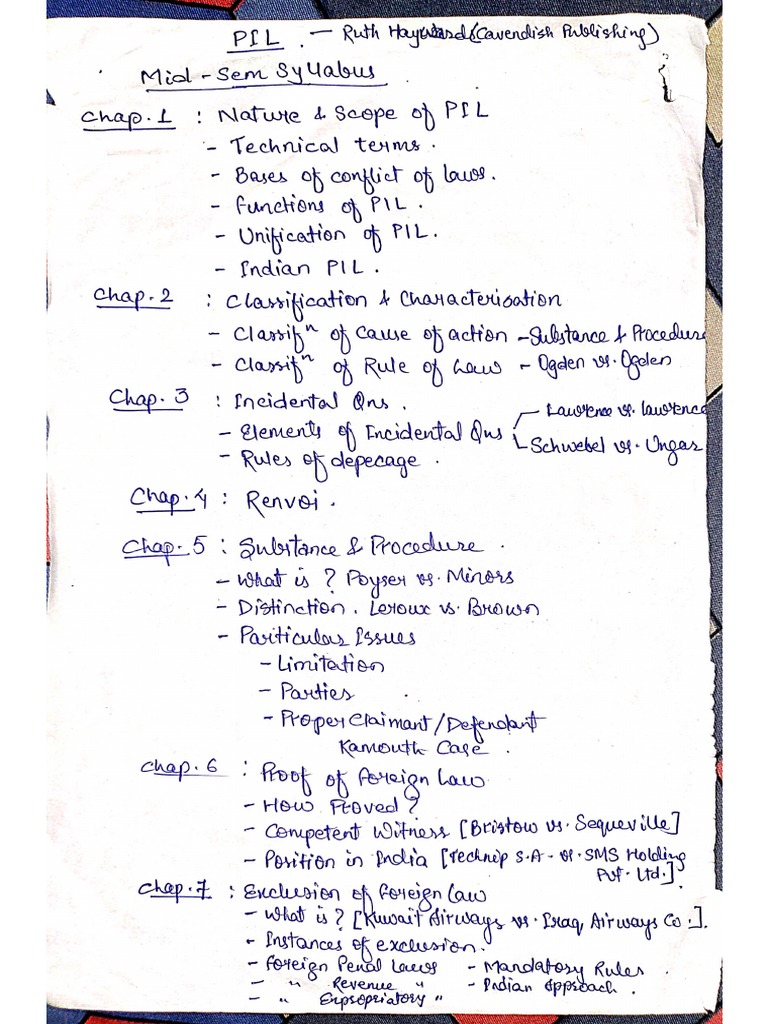 PIL. - Ruth Hayward (Cavendish Publishing)
Mid-Sem Syllabus
Chap.1 : Nature & Scope of PIL
- Technical terms.
- Bases of conflict of laws.
- Functions of PIL.
- Unification of PIL.
- Indian PIL.
Chap.2 : Classification & Characterisation
- Classifⁿ of cause of action - Substance & Procedure
- Classifⁿ of Rule of Law - Ogden vs. Ogden
Chap. 3 : Incidental Qns.
- Elements of Incidental Qns - Lawrence vs. Lawrence
- Schwebel vs. Ungar
- Rules of depecage.
Chap.4 : Renvoi.
Chap. 5 : Substance & Procedure.
- What is ? Poyser vs. Minors
- Distinction. Leroux vs. Brown
- Particular Issues
- Limitation
- Parties
- Proper Claimant/Defendant
Kamouth Case.
Chap. 6 : Proof of Foreign Law
- How Proved?
- Competent Witness [Bristow vs. Sequeville]
- Position in India [Technip S.A. vs. SMS Holding
Pvt. Ltd.]
Chap. 7 : Exclusion of Foreign Law
- What is? [Kuwait Airways vs. Iraq Airways Co.].
- Instances of exclusion.
- Foreign Penal Laws - Mandatory Rules.
- " Revenue " - Indian Approach.
- " Expropriatory "